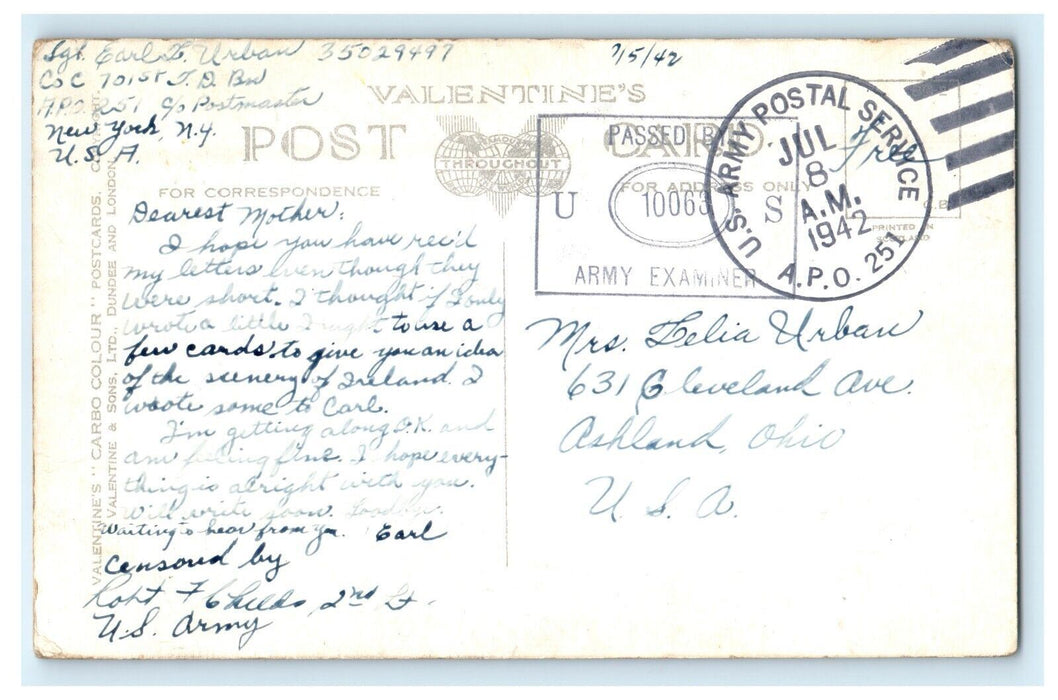 Sgt. Earl F. Urban 35029497
Co C 701st T. D. Bn
A.P.O. 251 c/o Postmaster
New York, N.Y.
U. S. A.
7/5/42
VALENTINE'S
POST CARD
THROUGHOUT
FOR CORRESPONDENCE
FOR ADDRESS ONLY
PRINTED IN
SCOTLAND
PASSED BY
U 10063 S
ARMY EXAMINER
U.S. ARMY POSTAL SERVICE
JUL
8
A.M.
1942
A.P.O. 251
Free
Dearest Mother:
I hope you have rec'd
my letters even though they
were short. I thought if I only
wrote a little I might to use a
few cards to give you an idea
of the scenery of Ireland. I
wrote some to Carl.
I'm getting along O.K. and
am feeling fine. I hope every-
thing is alright with you.
Will write soon. Goodbye.
Waiting to hear from you. Earl
Censored by
Robt F Childs, 2nd Lt.
U.S. Army
Mrs. Lelia Urban
631 Cleveland Ave.
Ashland, Ohio
U. S. A.
VALENTINE'S "CARBO COLOUR" POSTCARDS.
VALENTINE & SONS, LTD., DUNDEE AND LONDON